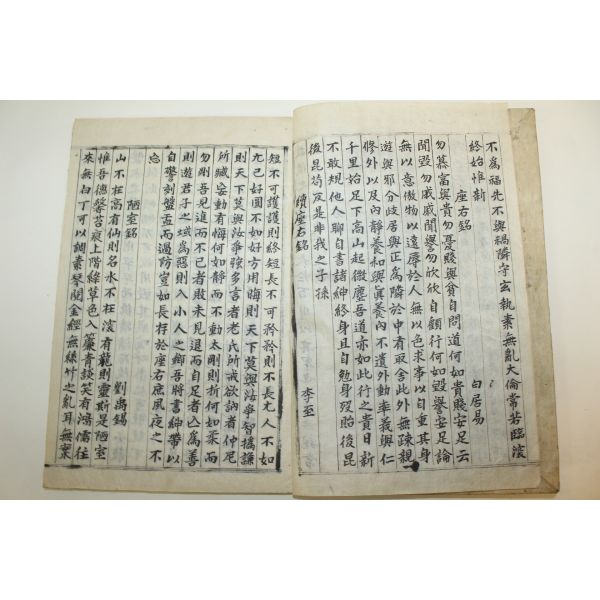 不為福先不與禍隣守玄執素無亂大倫常若臨淵
終始惟新
座右銘 白居易
勿慕富與貴勿憂賤與貧自問道何如貴賤安足云
聞毀勿戚戚聞譽勿欣欣自顧行何如毀譽安足論
無以意傲物以遠辱於人無以色求事以自重其身
遊與邪分歧居與正為隣於中有取舍此外無疎親
修外以及內靜養和與真養內不遺外動率義與仁
千里始足下高山起微塵吾道亦如此行之貴日新
不敢規他人聊自書諸紳終身且自勉身歿貽後昆
後昆苟反是非我之子孫
續座右銘 李至
短不可護護則終短長不可矜矜則不長尤人不如
尤己好圓不如好方用晦則天下莫與汝爭智撝謙
則天下莫與汝爭強多言者老氏所戒欲訥者仲尼
所臧妄動有悔何如靜而不動太剛則折何如柔而
勿剛吾見進而不已者敗未見退而自足者亡為善
則遊君子之域為惡則入小人之鄉吾將書紳帶以
自警刻盤盂而過防豈如長存於座右庶夙夜之不
忘
陋室銘 劉禹錫
山不在高有仙則名水不在深有龍則靈斯是陋室
惟吾德馨苔痕上階綠草色入簾青談笑有鴻儒往
來無白丁可以調素琴閱金經無絲竹之亂耳無案